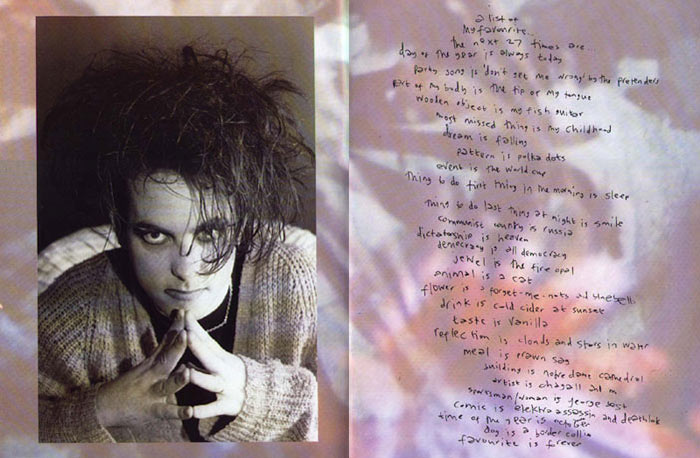 a list of
my favourite...
the next 27 times are...
day of the year is always today
party song is 'don't get me wrong' by the pretenders
part of my body is the tip of my tongue
wooden object is my fish guitar
most missed thing is my childhood
dream is falling
pattern is polka dots
event is the world cup
thing to do first thing in the morning is sleep
thing to do last thing at night is smile
communist country is russia
dictatorship is heaven
democracy is all democracy
jewel is the fire opal
animal is a cat
flower is a forget-me-nots and bluebells
drink is cold cider at sunset
taste is vanilla
reflection is clouds and stars in water
meal is prawn sag
building is notre dame cathedral
artist is chagall and
sportsman/woman is george best
comic is elektra assassin and deathlok
time of the year is october
dog is a border collie
favourite is forever